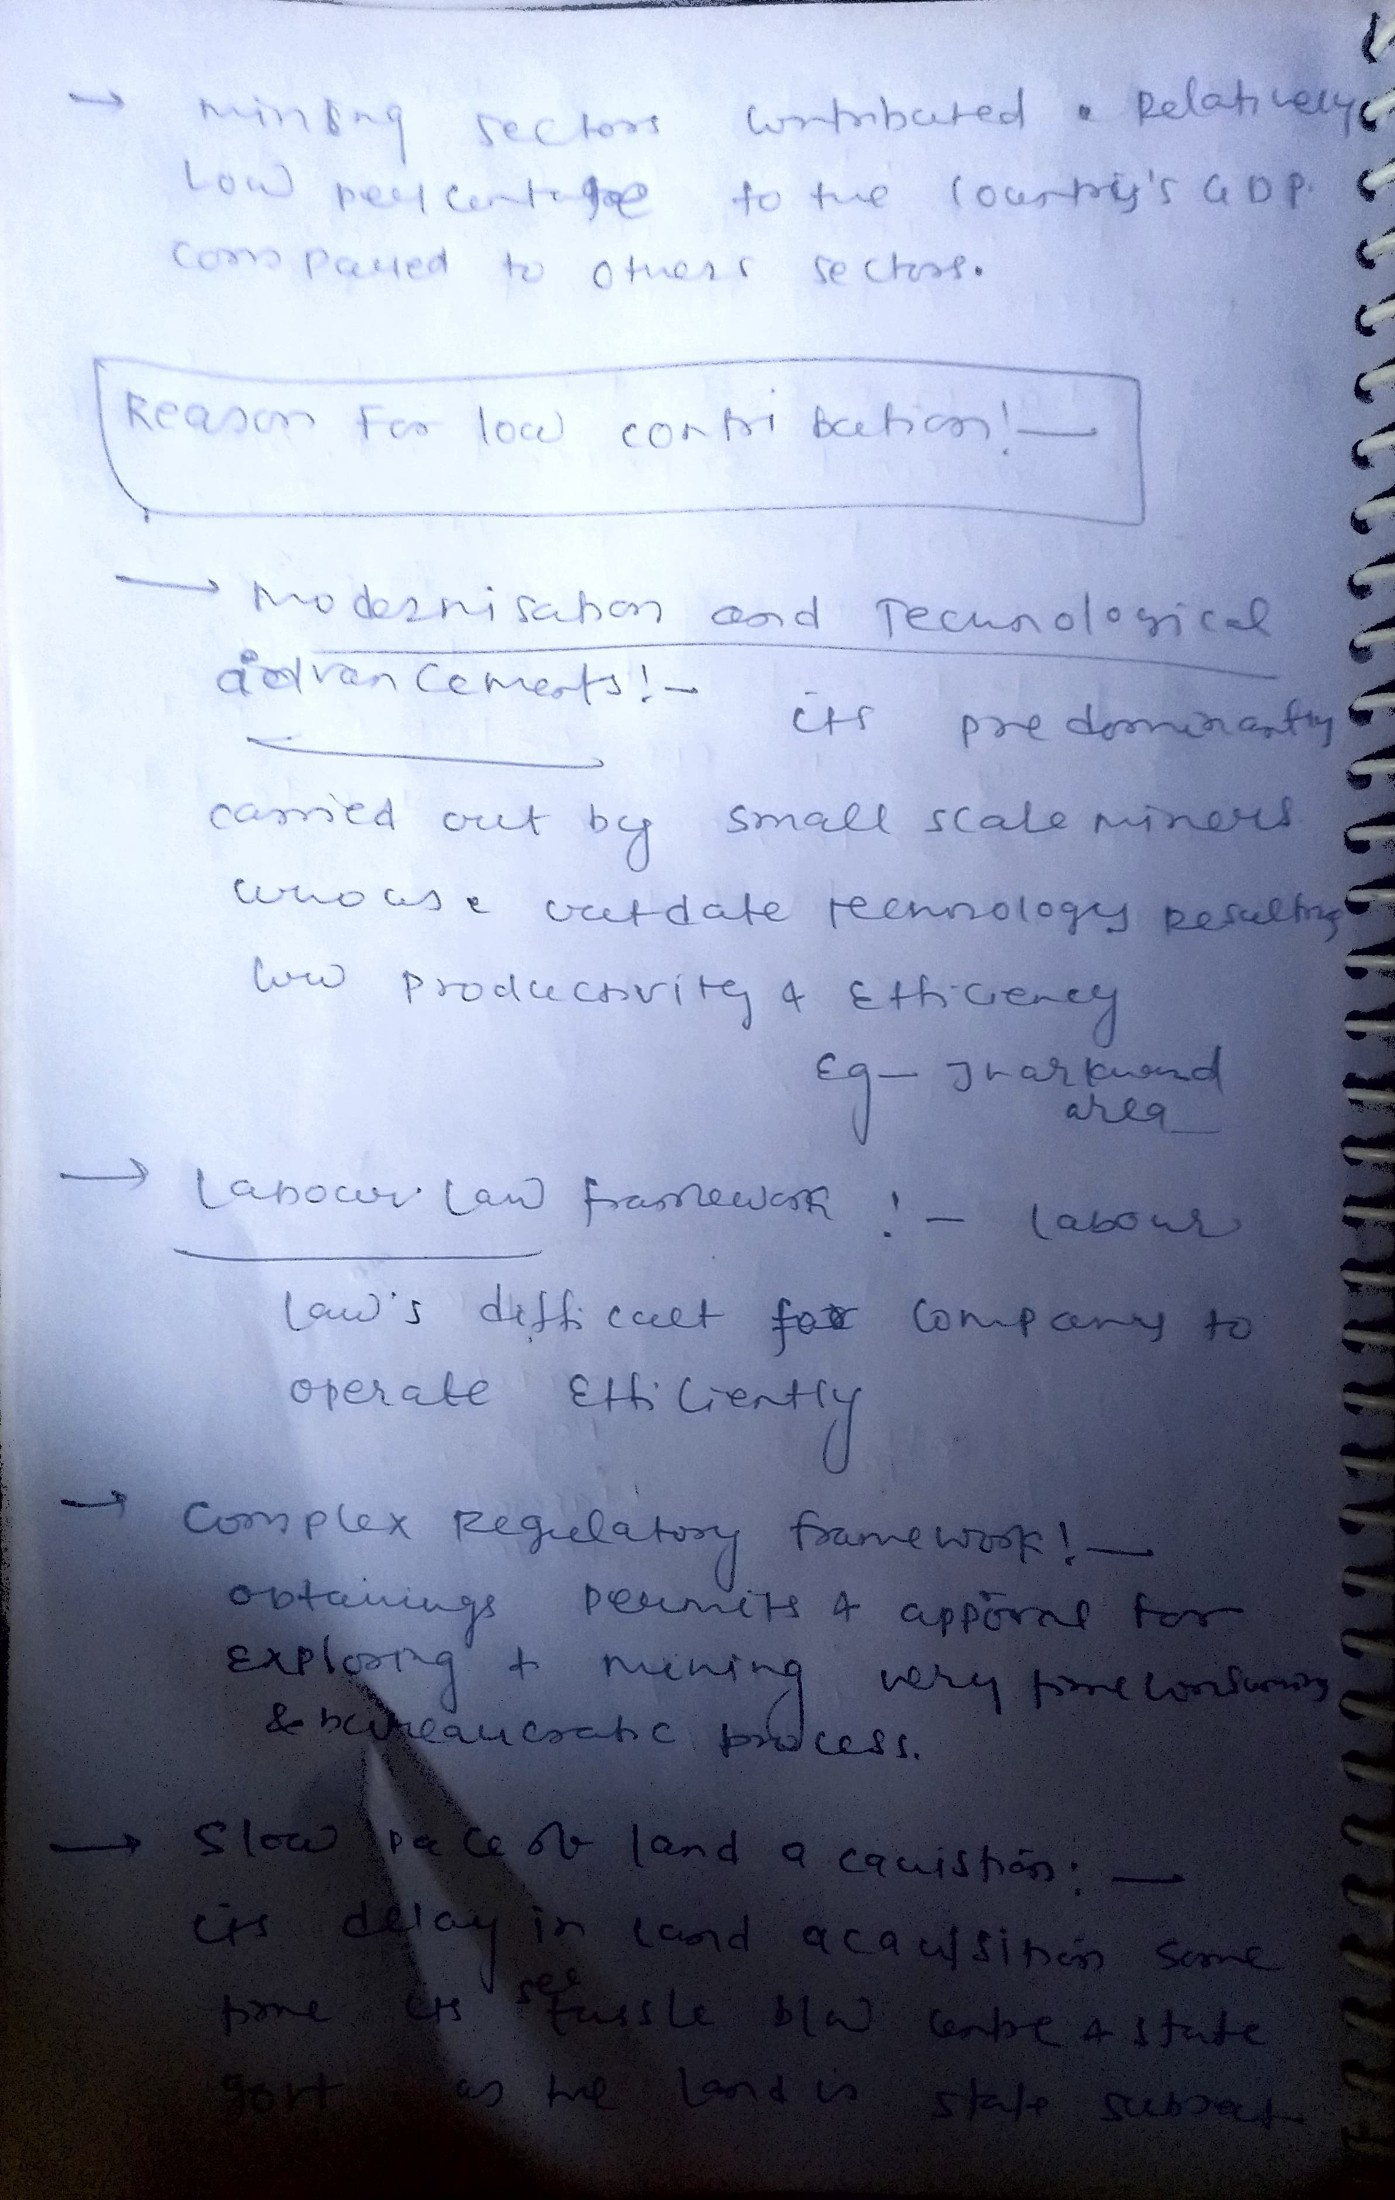 → mining sectors contributed a Relatively
Low percentage to the country's GDP
compared to others sectors.
Reason for low contribution! —
→ Modernisation and Technological
advancements! - its predominantly
carried out by small scale miners
who use outdate technology Resulting
low productivity & Efficiency
Eg - Jharkhand
area
→ Labour law framework ! - labour
law's difficult for company to
operate Efficiently
→ Complex Regulatory framework! —
obtainings permits & for
Exploring + mining very time consuming
& bureaucratic process.
→ Slow pace of land acquistion: —
its delay in land acquisition some
time its see tussle b/w centre & state
govt as the land is state